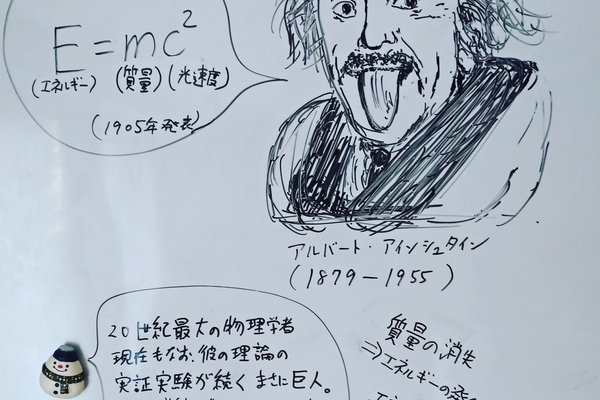 E=mc²
(エネルギー) (質量) (光速度)
(1905年発表)
アルバート・アインシュタイン
(1879-1955)
20世紀最大の物理学者
現在もなお、彼の理論の
実証実験が続く まさに巨人。
質量の消失
⇒エネルギーの